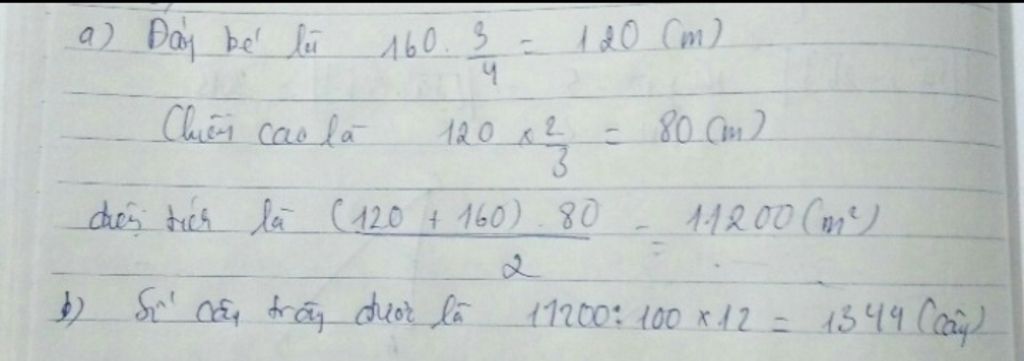 a) Đáy bé là 160 . 3/4 = 120 (m)
Chiều cao là 120 x 2/3 = 80 (m)
diện tích là (120 + 160) . 80 / 2 = 11200 (m²)
b) Số cây trồng được là 11200 : 100 x 12 = 1344 (cây)